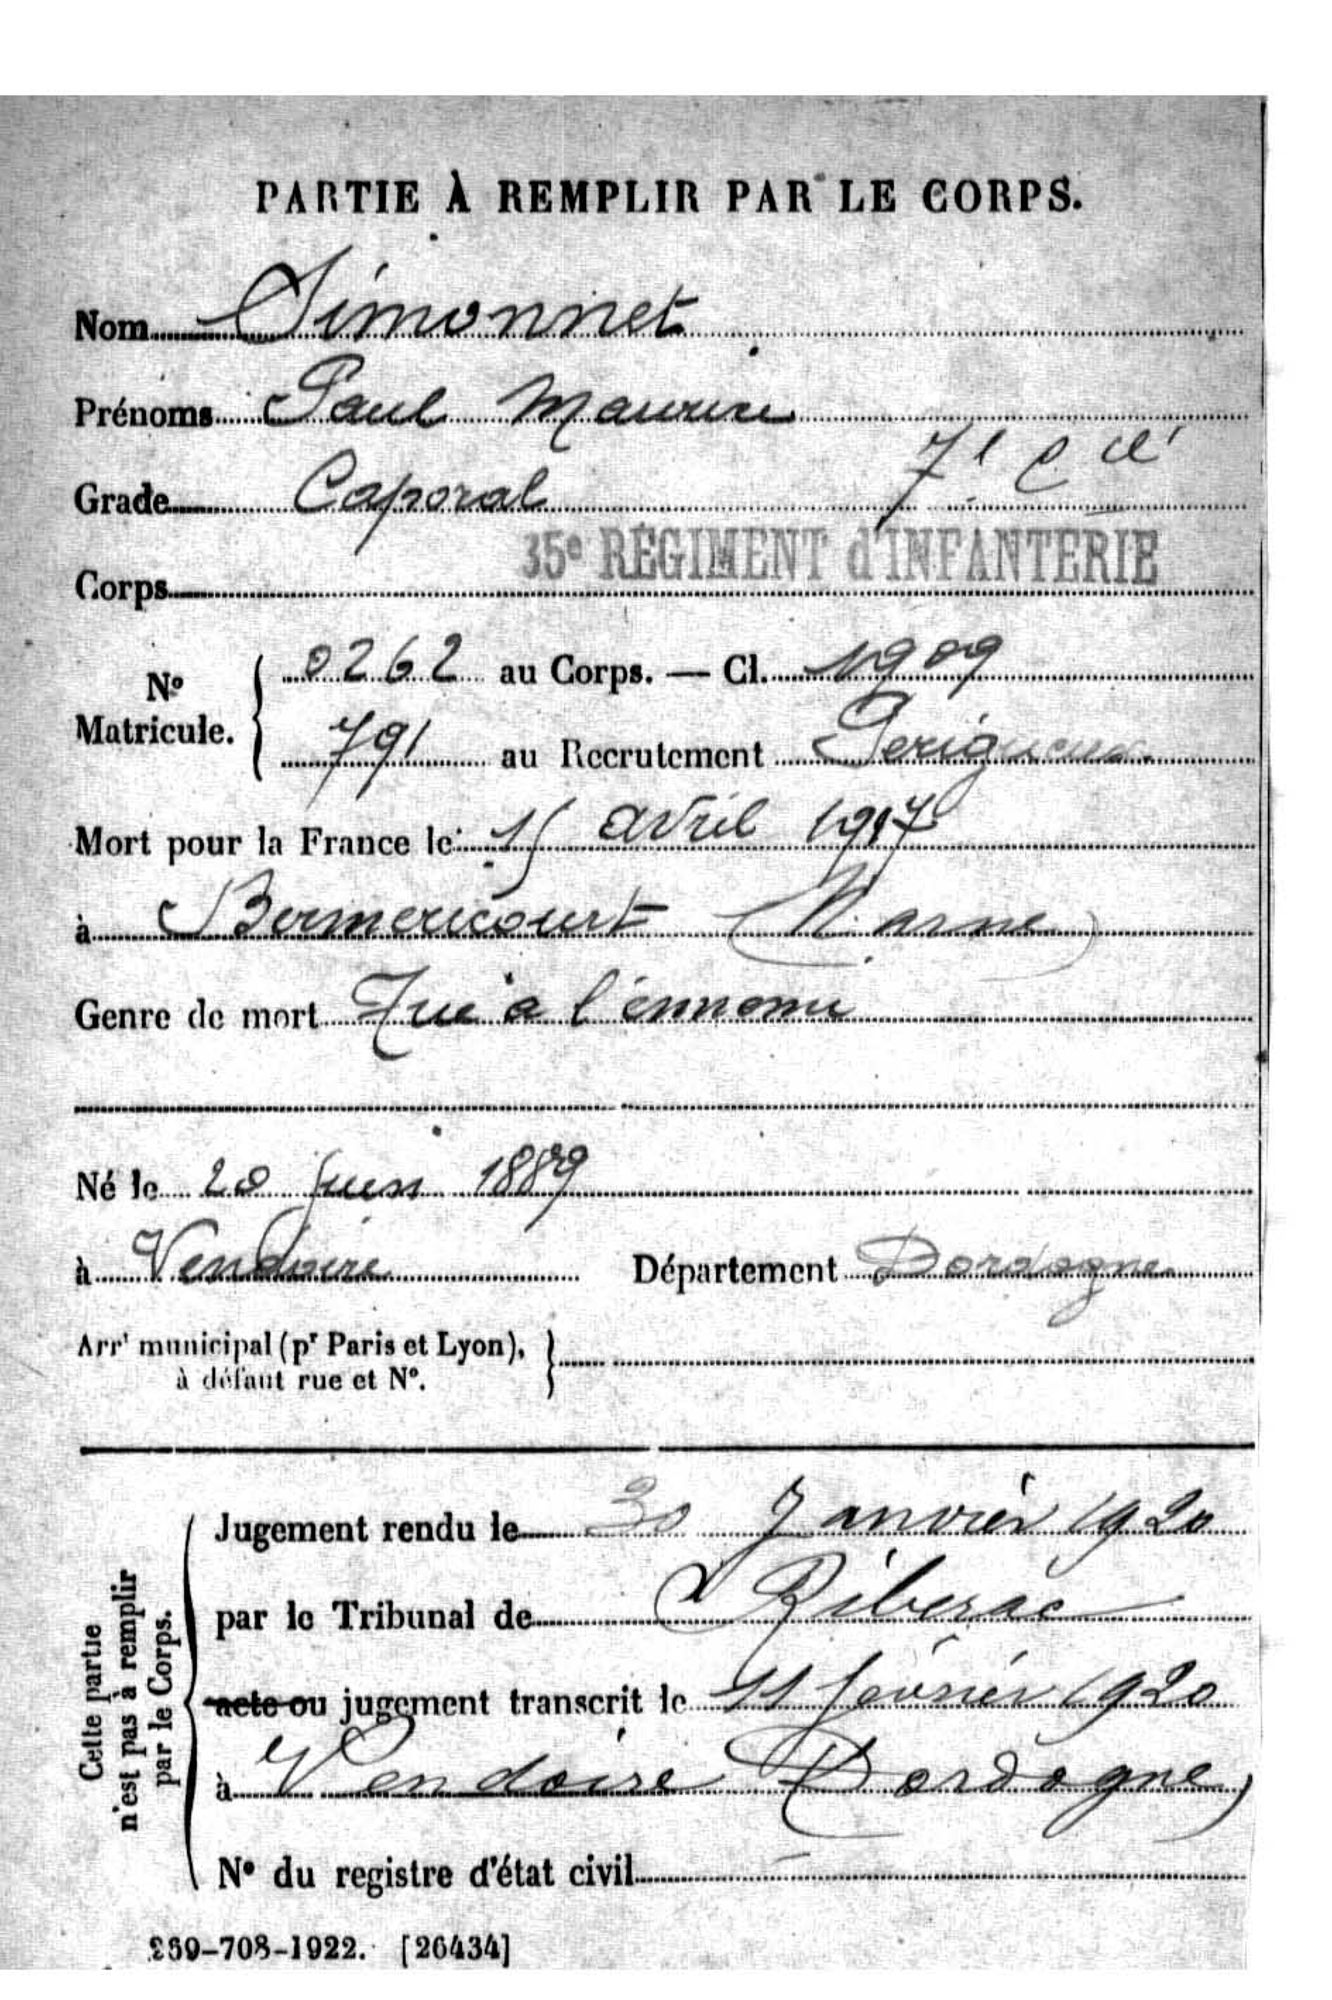 PARTIE À REMPLIR PAR LE CORPS.
Nom Simonnet
Prénoms Paul Maurice
Grade Caporal 7e C ie
Corps 35e RÉGIMENT d'INFANTERIE
No Matricule. 0262 au Corps. — Cl. 1909
791 au Recrutement Perigueux
Mort pour la France le 15 avril 1917
à Bermericourt (Marne)
Genre de mort Tué a l'ennemi
Né le 20 Juin 1889
à Vendoire Département Dordogne
Arrt municipal (pr Paris et Lyon),
à défaut rue et No.
Cette partie
n'est pas à remplir
par le Corps.
Jugement rendu le 30 Janvier 1920
par le Tribunal de Ribérac
acte ou jugement transcrit le 11 février 1920
à Vendoire (Dordogne)
No du registre d'état civil
259-708-1922. [26434]